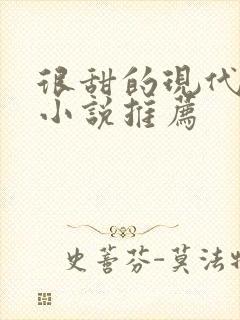 很甜的現代
小說推薦
史蒂芬-莫法特